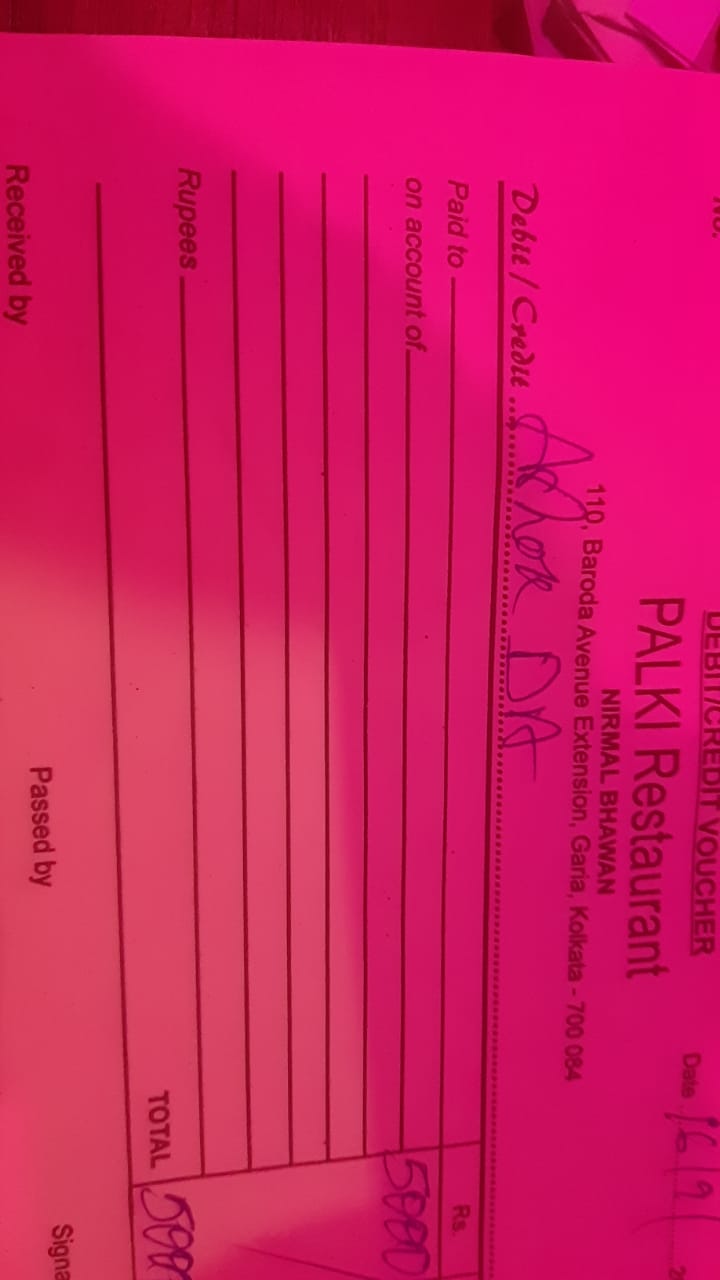 No.
DEBIT/CREDIT VOUCHER
PALKI Restaurant
NIRMAL BHAWAN
110, Baroda Avenue Extension, Garia, Kolkata - 700 084
Date
Debit / Credit Ashok DA
Rs.
Paid to
on account of 5000
TOTAL
Rupees
Received by Passed by